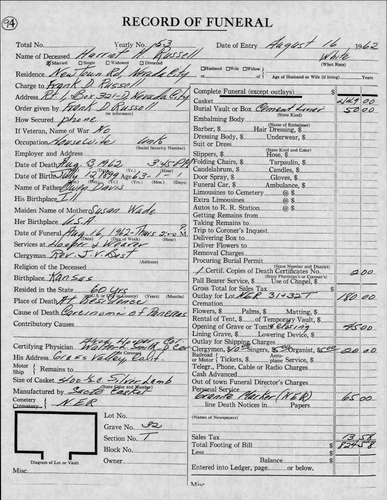 94
RECORD OF FUNERAL
Total No. Yearly No. 63 Date of Entry August 16 1962
Name of Deceased Harriet M. Russell White
Married Single Widowed Divorced Husband Wife Widow (What Race)
Residence Newtown Rd, Nevada City of Age of Husband or Wife (if living) Years
Charge to Frank D Russell
Address Rt 1, Box 321-D, Nevada City
Order given by Frank D Russell
How Secured phone
If Veteran, Name of War No
Occupation Housewife (Social Security Number)
Employer and Address
Date of Death Aug 13, 1962 3:45 PM
Date of Birth 12 1898
Name of Father Davis
His Birthplace Ill
Maiden Name of Mother Susan Wade
Her Birthplace U.S.A.
Date of Funeral Aug 16, 1962 - Thurs 2:00 PM
Services at Hooper & Weaver
Clergyman Rev. J. V. Best
Religion of the Deceased (Address)
Birthplace Kansas
Resided in the State 60 yrs (Months)
Place of Death At Residence
Cause of Death Carcinoma of Pancreas
Contributory Causes
Certifying Physician
His Address Grass Valley Calif.
Motor Ship Remains to
Size of Casket Silver Lamb
Manufactured by Casket (State Size and Number)
Cemetery Crematory N.E.R
Lot No.
Grave No. 32
Section No. T
Block No.
Owner
Diagram of Lot or Vault
Misc.
Complete Funeral (except outlays) $
Casket
Burial Vault or Box Cement Liner 50 00
(State Kind)
Embalming Body
(Name of Embalmer)
Barber, $ Hair Dressing, $
Dressing Body, $ Underwear, $
Suit or Dress
(State Kind and Color)
Slippers, $ Hose, $
Folding Chairs, $ Tarpaulin, $
Candelabrum, $ Candles, $
Door Spray, $ Gloves, $
Funeral Car, $ Ambulance, $
Limousines to Cemetery @ $
Extra Limousines @ $
Autos to R. R. Station @ $
Getting Remains from
Taking Remains to
Trip to Coroner's Inquest
Delivering Box to
Deliver Flowers to
Removal Charges
Procuring Burial Permit
(State Number and District)
1 Certif. Copies of Death Certificates No. 2 00
(State Physician's or Coroner's)
Pall Bearer Service, $ Use of Chapel, $
Gross Total for Sales Tax $
Outlay for Lot NER 31+32 T 180 00
(Kind of Removal)
Flowers, $ Palms, $ Matting, $
Rental of Tent, $ of Temporary Vault, $
Opening of Grave or Tomb & Closing 45 00
Lining Grave, $ Lowering Device, $
Outlay for Shipping Charges
Clergymen, $ Singers, $ Organist, $ 20 00
Railroad or Motor Service $ Aeroplane Service, $
Telegr., Phone, Cable or Radio Charges
Cash Advanced
Out of town Funeral Director's Charges
Personal Service
Granite Marker (NER) 65 00
line Death Notices in Papers
(Names of Newspapers)
Sales Tax 13 58
Total Footing of Bill $ 824 58
Less $
Balance $
Entered into Ledger, page or below.
Misc.